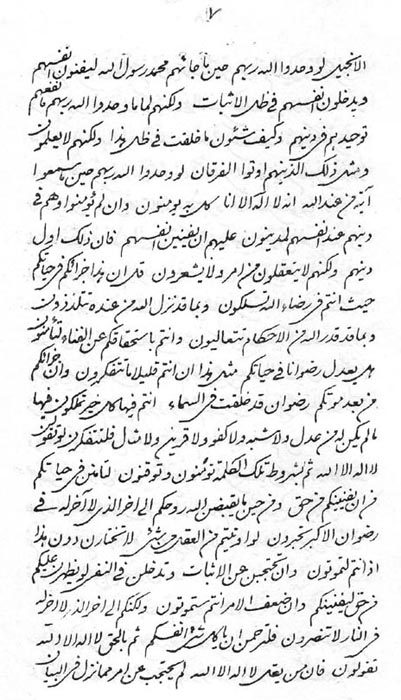 ٧
الانجيل لو وحدوا الله ربهم حين ما جائهم محمد رسول الله ليفنون انفسهم
ويدخلون انفسهم في ظل الاثبات ولكنهم لما ما وحدوا الله ربهم ما نفعهم
توحيدهم في دينهم وكيف شئون ما خلقت في ظل هذا ولكنهم لا يعلمون
ومثل ذلك الذينهم اوتوا الفرقان لو وحدوا الله ربهم حين ما سمعوا
آية من عند الله انه لا اله الا انا كل به يومنون وان لم يؤمنوا وهم في
دينهم عند انفسهم لمدينون عليهم ان يفنين انفسهم فان ذلك اول
دينهم ولكنهم لا يتعقلون من امر ولا يشعرون قل ان هذا جزائكم في حياتكم
حيث انتم في رضاء الله تسلكون وبما قد نزل الله من عنده تتلذذون
وبما قد قدر الله من الاحكام تتعاليون وانتم باستحقاقكم عن الفناء لتأمنون
هل يعدل رضوانا في حياتكم مثل هذا ان انتم قليلا ما تتفكرون وان جزائكم
من بعد موتكم رضوان قد خلقت في السماء انتم فيها كل خير تملكون فيها
ما لم يكن له من عدل ولا شبه ولا كفو ولا قرين ولا مثل فلتتفكرون لو تقولن
لا اله الا الله ثم بشروط تلك الكلمة تؤمنون وتوقنون لتأمنن في حياتكم
من ان يفنينكم من حق ومن حين ما يقبض الله روحكم الى اخر الذي لا آخر له في
رضوان الاكبر تحبرون لو اوتيتم من العقل من شئ لا تختارن دون هذا
اذا انتم لتموتون وان تحتجبن عن الاثبات وتدخلن في النفي لو يظهرن عليكم
من حق ليفنينكم وان ضعف الامر انتم ستموتون ولكنكم الى اخر الذي لا اخر له
في النار لا تنصرون فلترحمن ان يا كل شئ انفسكم ثم بالحق لا اله الا الله
تقولون فان من يقل لا اله الا الله لم يحتجب عن امر مما نزل في البيان